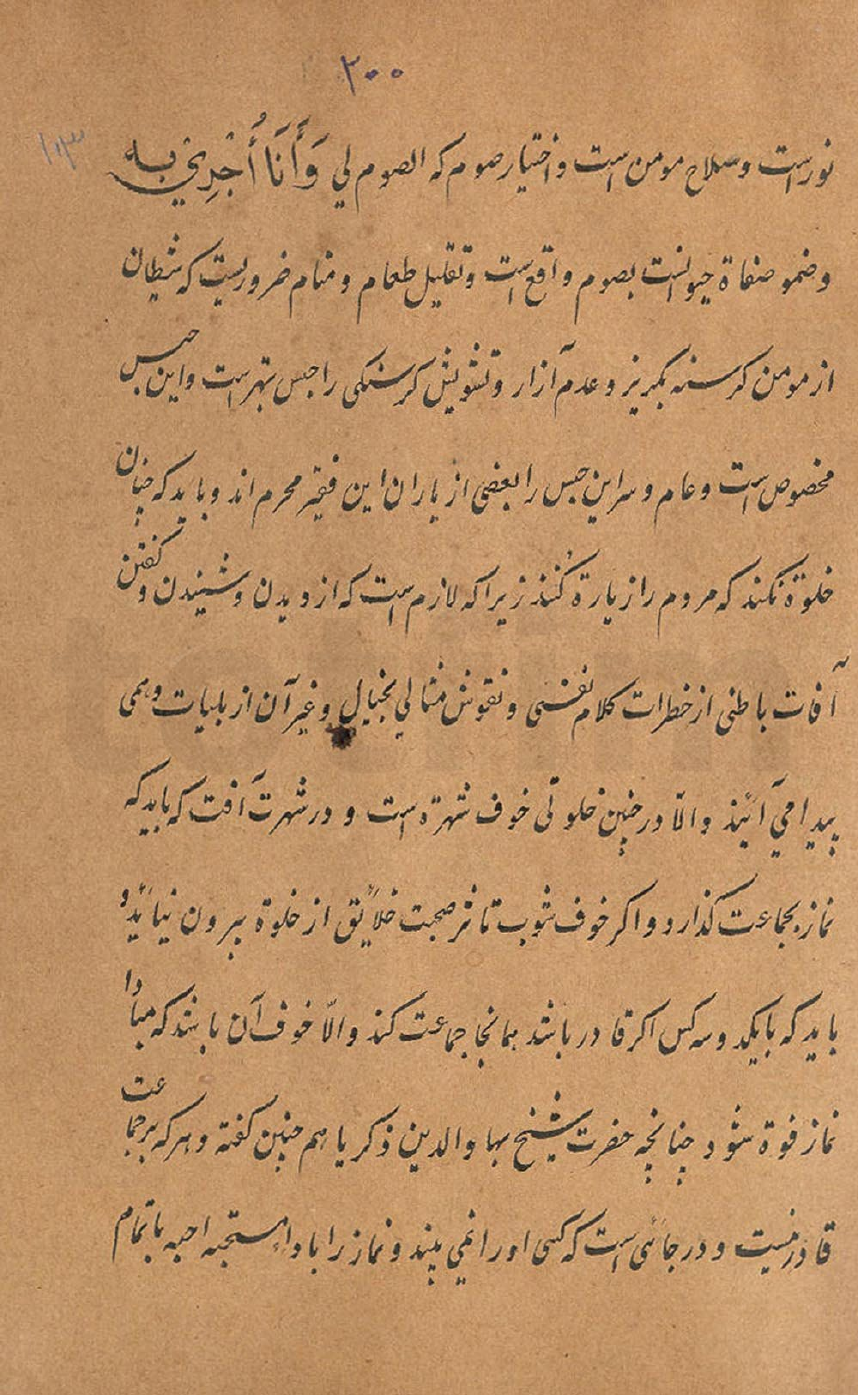 ۲۰۰
۱۰۳
نور است وسلاح مومن است واختیار صوم که الصوم لي وَأَنَا أُجْزِيْ به
وضمو صفاة حیوانست بصوم واقع است وتقلیل طعام ومنام ضروریست که شیطان
از مومن کرسنه بگریزد وعدم آزار وتشویش کرسنکی را حبس بهتر است واین حبس
مخصوص است وعام وسر این حبس را بعضی از یاران این فقیر محرم اند وباید که چنان
خلوة نکند که مردم را زیارة کُنند زیرا که لازم است که از دیدن وشنیدن وگفتن
آفات باطنی از خطرات کلام نفسی ونقوش مثالي بخیال وغیر آن از بلیات وهمی
پیدا مي آیند والّا در چنین خلوتی خوف شهرة است ودر شهرت آفت که باید که
نماز بجماعت کذارد واکر خوف شوب تاثر صحبت خلایق از خلوة بیرون نیاید و
باید که با یکدو سه کس اکر قادر باشد همانجا جماعت کند والّا خوف آن باشد که مبادا
نماز فوة شود چنانچه حضرت شیخ بهاوالدین ذکریا هم چنین کفته وهرکه بر جماعت
قادر نیست ودر جائی است که کسی اورا نمي بیند ونماز را باداء مستحبه احبه باتمام